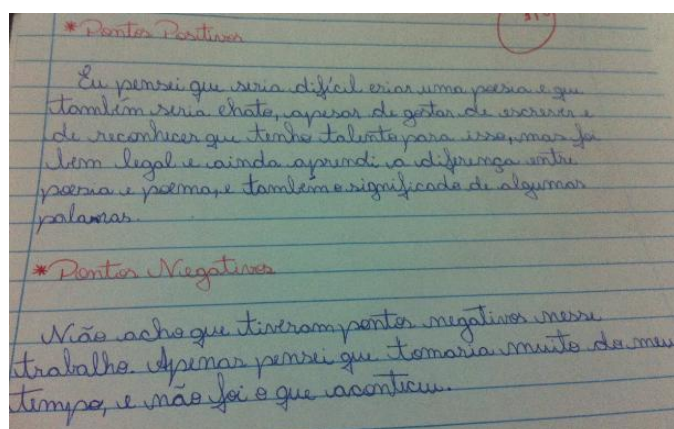 * Pontos Positivos
Eu pensei que seria difícil criar uma poesia e que
também seria chato, apesar de gostar de escrever e
de reconhecer que tenho talento para isso, mas foi
bem legal e ainda aprendi a diferença entre
poesia e poema, e também o significado de algumas
palavras.
* Pontos Negativos
Não acho que tiveram pontos negativos nesse
trabalho. Apenas pensei que tomaria muito do meu
tempo, e não foi o que aconteceu.